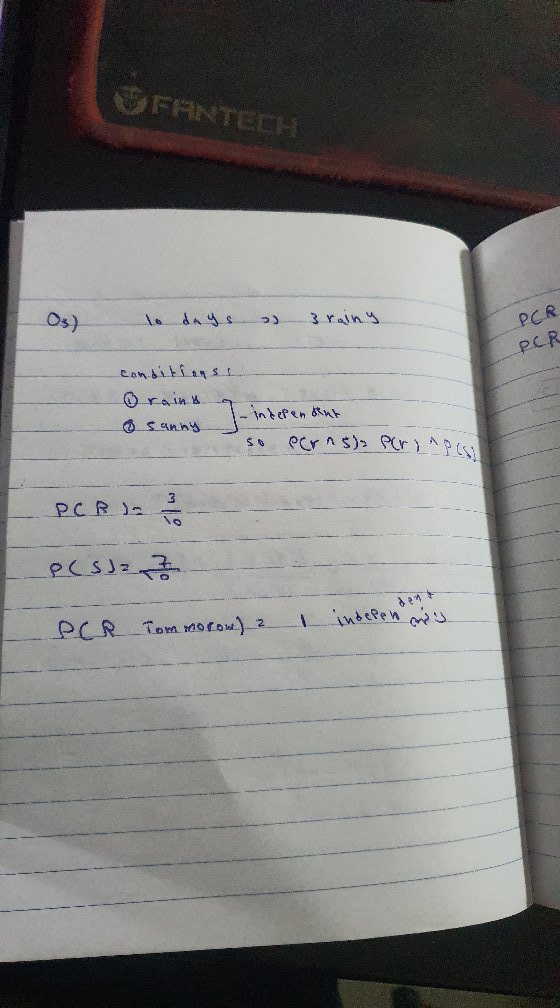 FANTECH
Q3) 10 days => 3 rainy
conditions:
① rainy
② sunny
] - independent
so P(r ∩ s) = P(r) ^ P(s)
P(R) = 3/10
P(S) = 7/10
P(R Tommorow) = 1 independent
P(R
P(R